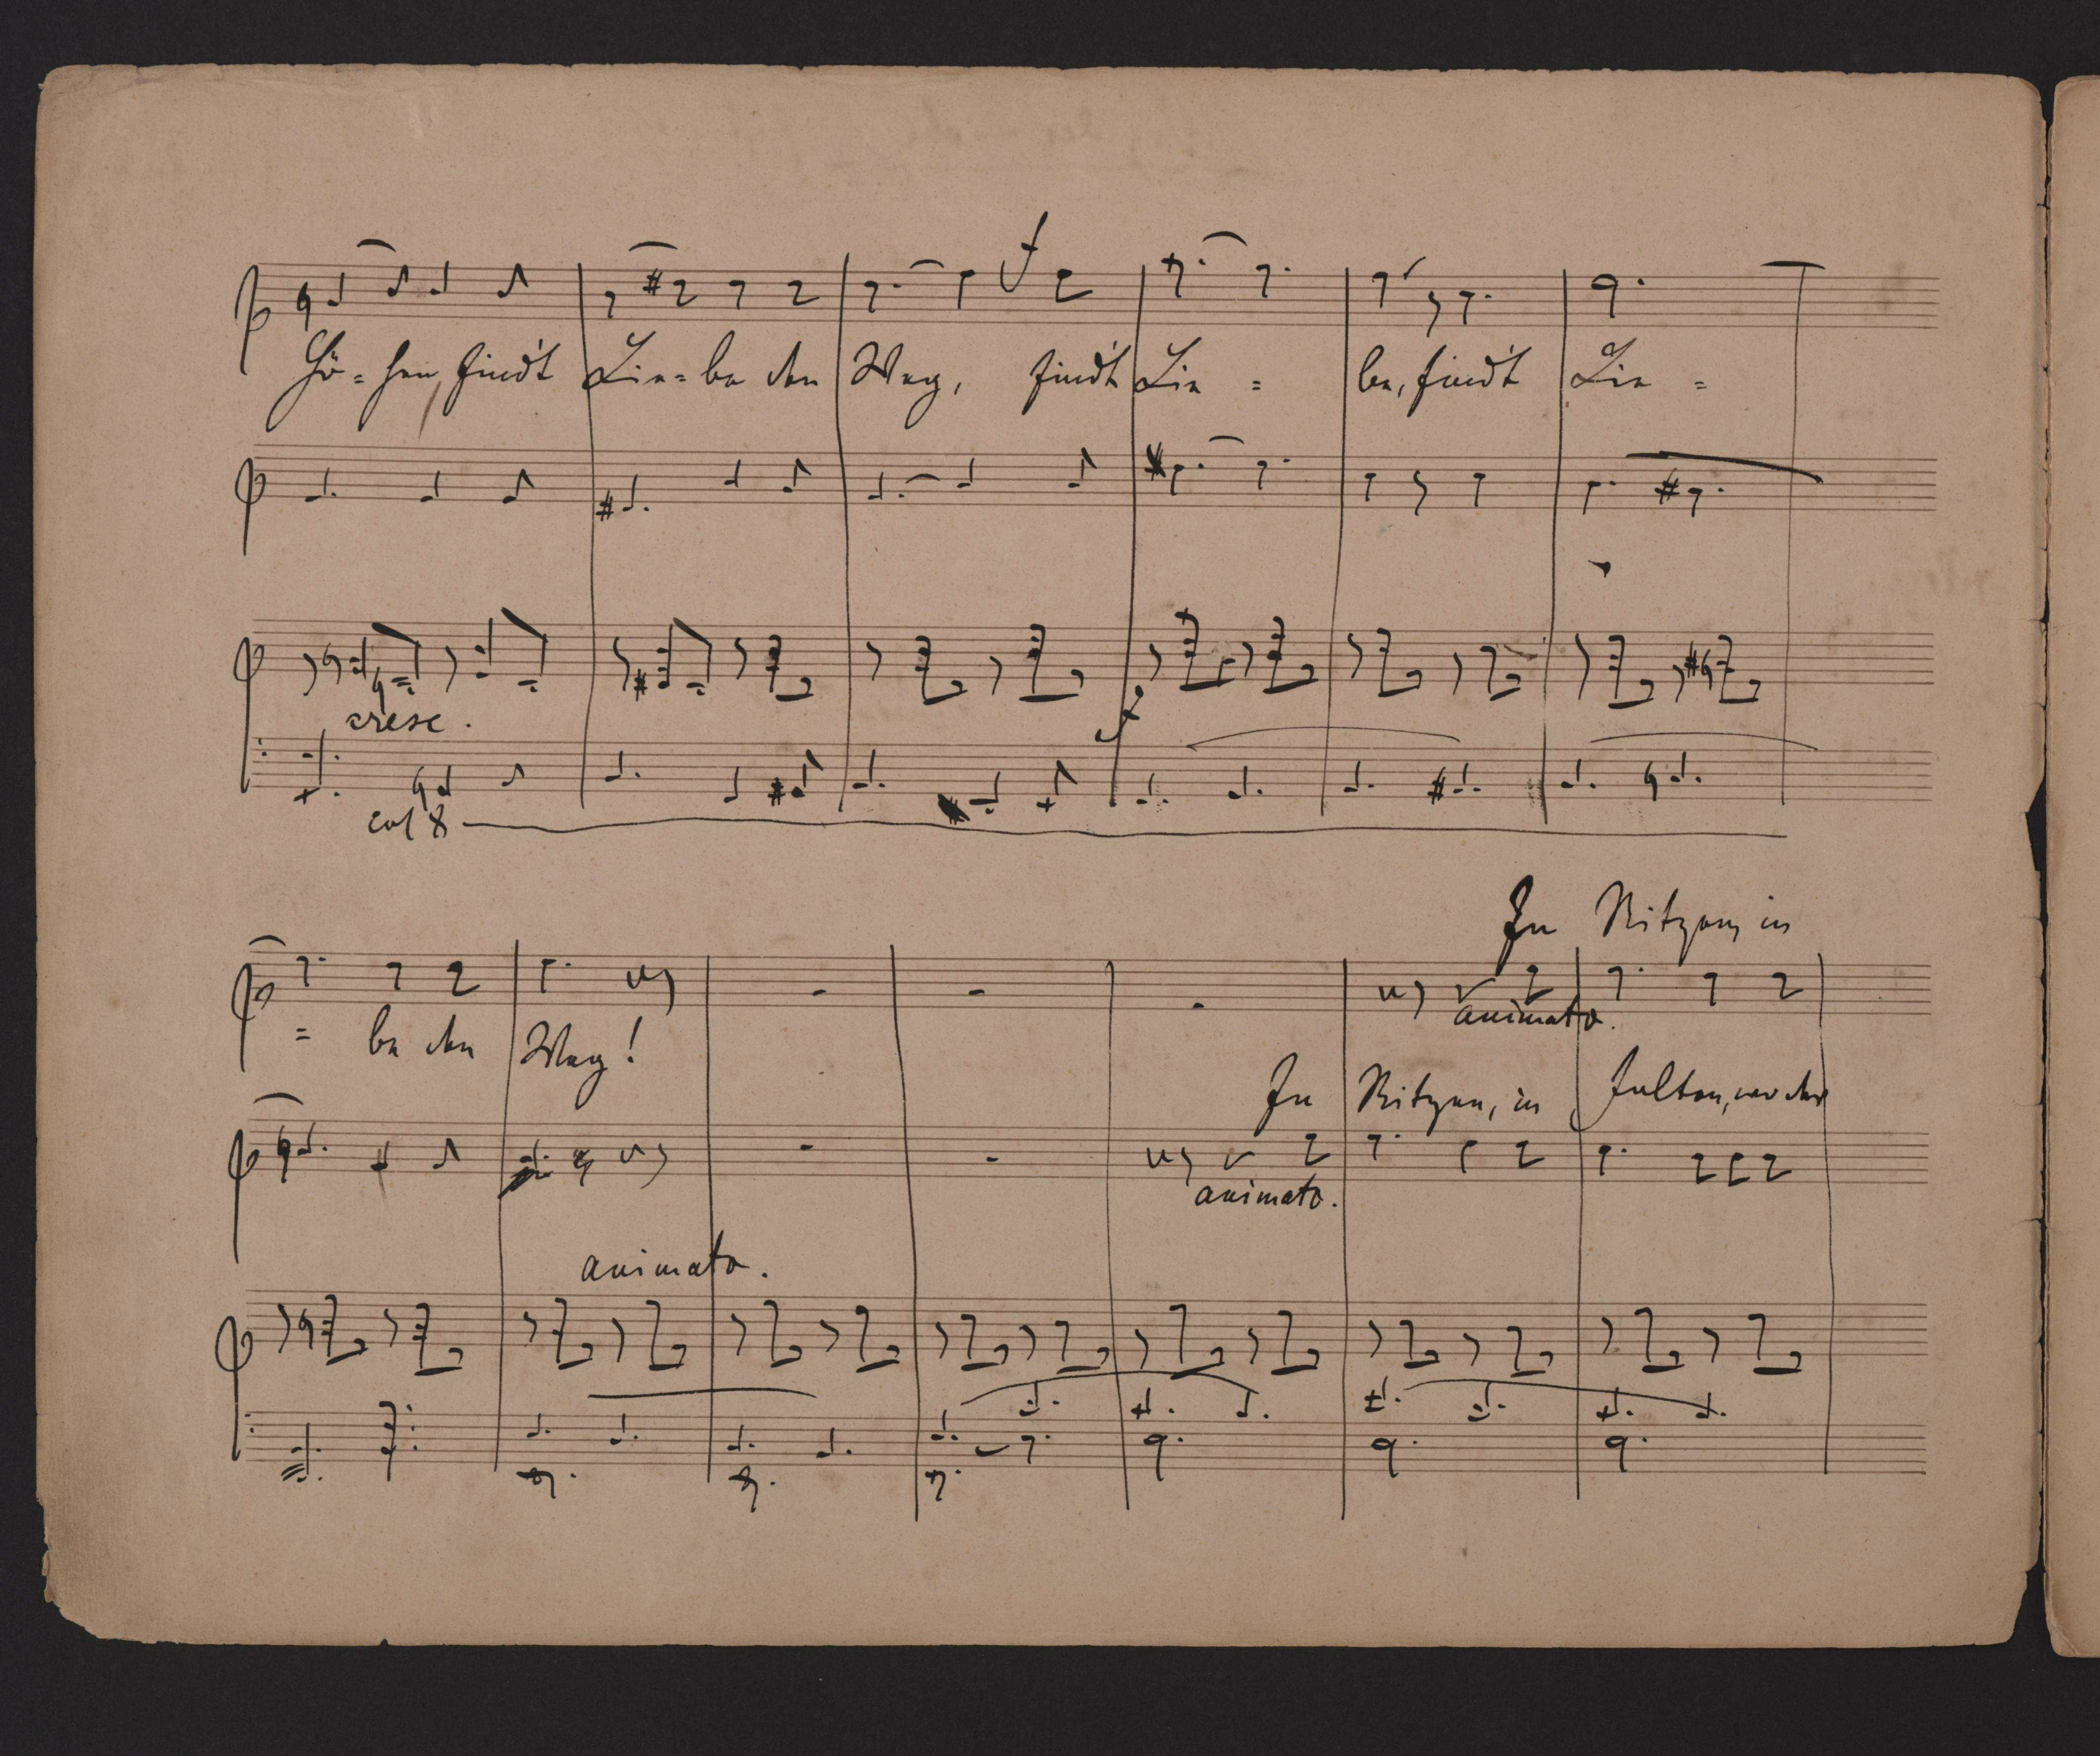 f
Hö=hen, findt Lie=be den Weg, findt Lie = be, findt Lie =
cresc.
f
col 8
In Ritzen, in
animato.
= be den Weg!
In Ritzen, in Falten, wo der
animato.
animato.